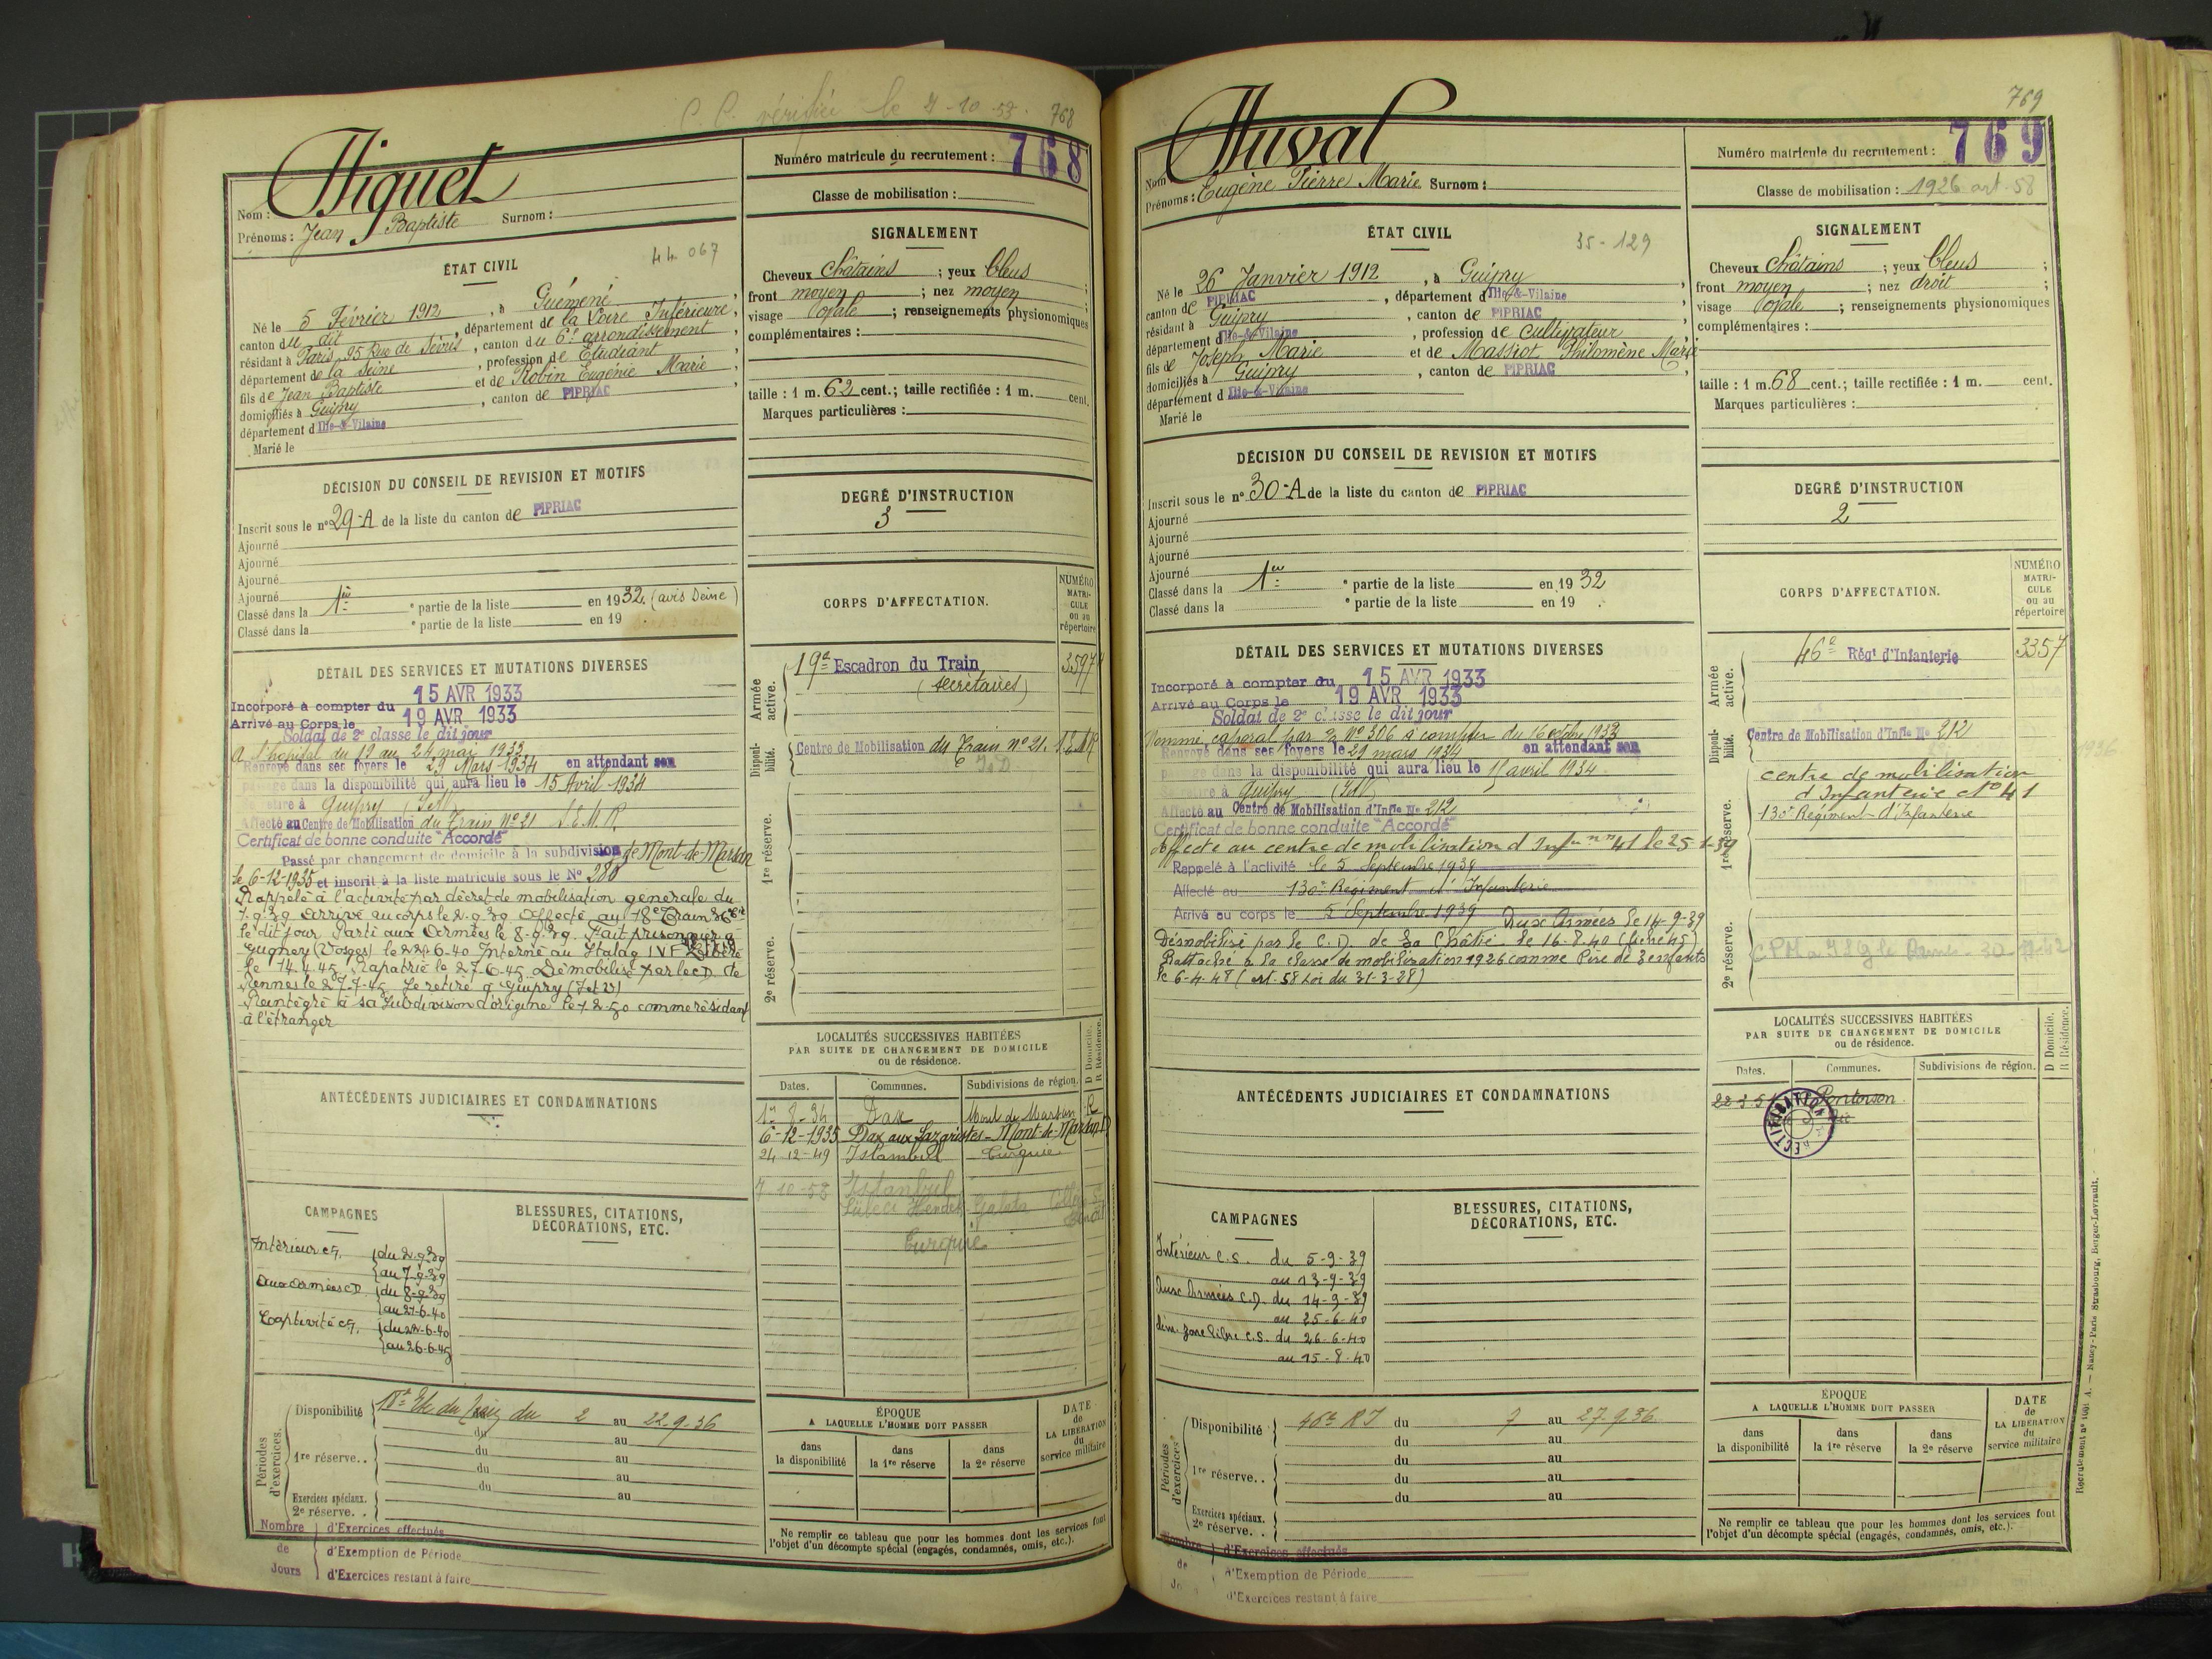 C. C. vérifiée le 7-10-53. 768
Higuet
Nom :
Prénoms : Jean Baptiste Surnom :
Numéro matricule du recrutement : 768
Classe de mobilisation :
ÉTAT CIVIL
44 067
Né le 5 Février 1912, à Guémené,
canton du dit, département de la Loire Inférieure,
résidant à Paris, 95 Rue de Sèvres, canton du 6e arrondissement,
département de la Seine, profession de Etudiant
fils de Jean Baptiste et de Robin Eugénie Marie,
domiciliés à Guipry, canton de PIPRIAC,
département d'Ille-&-Vilaine
Marié le
SIGNALEMENT
Cheveux châtains ; yeux bleus ;
front moyen ; nez moyen ;
visage ovale ; renseignements physionomiques
complémentaires :
taille : 1 m. 62 cent.; taille rectifiée : 1 m. cent.
Marques particulières :
DÉCISION DU CONSEIL DE REVISION ET MOTIFS
Inscrit sous le n° 29-A de la liste du canton de PIPRIAC
Ajourné
Ajourné
Ajourné
Ajourné
Classé dans la 1re partie de la liste en 1932. (avis Seine)
Classé dans la partie de la liste en 19
DEGRÉ D'INSTRUCTION
3
DÉTAIL DES SERVICES ET MUTATIONS DIVERSES
Incorporé à compter du 15 AVR 1933
Arrivé au Corps le 19 AVR 1933
Soldat de 2e classe le dit jour
A l'hopital du 19 au 24 mai 1933
Renvoyé dans ses foyers le 29 Mars 1934 en attendant son
passage dans la disponibilité qui aura lieu le 15 Avril 1934
Se retire à Guipry (I et V)
Affecté au Centre de Mobilisation du Train N° 21 S.E.M.R.
Certificat de bonne conduite "Accordé"
Passé par changement de domicile à la subdivision de Mont-de-Marsan
le 6-12-1935 et inscrit à la liste matricule sous le N° 280
Rappelé à l'activité par décret de mobilisation générale du
1.9.39 Arrivé au corps le 2.9.39 Affecté au 18e Train
le dit jour Parti aux Armées le 8.9.39. Fait prisonnier à
Gugney (Vosges) le 22.6.40 Interné au Stalag IVF Libéré
le 14.4.45 Rapatrié le 27-6-45 Démobilisé par le CD de
Rennes le 27-7-45 Se retire à Guipry (I et V)
Réintégré à sa Subdivision d'origine le 1-2-50 comme résidant
à l'étranger
CORPS D'AFFECTATION.
NUMÉRO MATRICULE ou au répertoire
Armée active.
19e Escadron du Train 3597
(secrétaires)
Disponibilité.
Centre de Mobilisation du Train n° 21. S.E.M.R
1re réserve.
2e réserve.
LOCALITÉS SUCCESSIVES HABITÉES
PAR SUITE DE CHANGEMENT DE DOMICILE
ou de résidence.
D Domicile. R Résidence.
Dates. Communes. Subdivisions de région.
1er-8-34 Dax Mont de Marsan R
6-12-1935 Dax aux Lazaristes - Mont-de-Marsan D
24-12-49 Istambul Turquie
7-10-53 Istanbul
Hendek Galata
Turquie
ANTÉCÉDENTS JUDICIAIRES ET CONDAMNATIONS
CAMPAGNES
Intérieur CS. du 2.9.39
au 7.9.39
Aux Armées CD. du 8.9.39
au 21-6-40
Captivité CS. du 22-6-40
au 26-6-45
BLESSURES, CITATIONS,
DÉCORATIONS, ETC.
Périodes d'exercices.
Disponibilité 18e du Train du 2 au 22-9-36
1re réserve..
Exercices spéciaux.
2e réserve..
du au
du au
du au
du au
ÉPOQUE
A LAQUELLE L'HOMME DOIT PASSER
dans la disponibilité
dans la 1re réserve
dans la 2e réserve
DATE de LA LIBÉRATION du service militaire
Ne remplir ce tableau que pour les hommes dont les services font
l'objet d'un décompte spécial (engagés, condamnés, omis, etc.).
Nombre de Jours
d'Exercices effectués
d'Exemption de Période
d'Exercices restant à faire
769
Huval
Nom
Prénoms : Eugène Pierre Marie Surnom :
Numéro matricule du recrutement : 769
Classe de mobilisation : 1926 art. 58
ÉTAT CIVIL
35-129
Né le 26 Janvier 1912, à Guipry,
canton de PIPRIAC, département d'Ille-&-Vilaine
résidant à Guipry, canton de PIPRIAC
département d'Ille-&-Vilaine, profession de cultivateur
fils de Joseph Marie et de Massiot Philomène Marie
domiciliés à Guipry, canton de PIPRIAC,
département d'Ille-&-Vilaine
Marié le
SIGNALEMENT
Cheveux châtains ; yeux bleus ;
front moyen ; nez droit ;
visage ovale ; renseignements physionomiques
complémentaires :
taille : 1 m. 68 cent.; taille rectifiée : 1 m. cent.
Marques particulières :
DÉCISION DU CONSEIL DE REVISION ET MOTIFS
Inscrit sous le n° 30-A de la liste du canton de PIPRIAC
Ajourné
Ajourné
Ajourné
Ajourné
Classé dans la 1re partie de la liste en 1932
Classé dans la partie de la liste en 19
DEGRÉ D'INSTRUCTION
2
DÉTAIL DES SERVICES ET MUTATIONS DIVERSES
Incorporé à compter du 15 AVR 1933
Arrivé au Corps le 19 AVR 1933
Soldat de 2e classe le dit jour
Nommé caporal par N° 306 à compter du 16 octobre 1933
Renvoyé dans ses foyers le 29 mars 1934 en attendant son
passage dans la disponibilité qui aura lieu le 15 avril 1934.
Se retire à Guipry (I et V)
Affecté au Centre de Mobilisation d'Infie N° 212
Certificat de bonne conduite "Accordé"
Affecté au centre de mobilisation d'Infie n° 41 le 25-1-39
Rappelé à l'activité le 5 Septembre 1939
Affecté au 130e Régiment d'Infanterie
Arrivé au corps le 5 Septembre 1939 Aux Armées le 14-9-39
Démobilisé par le C.D. de La Châtre le 16-8-40 (fiche 45)
Rattaché à la classe de mobilisation 1926 comme Père de 3 enfants
le 6-4-48 (art. 58 Loi du 31-3-28)
CORPS D'AFFECTATION.
NUMÉRO MATRICULE ou au répertoire
Armée active.
46e Régt d'Infanterie 3357
Disponibilité.
Centre de Mobilisation d'Infie N° 212
1re réserve.
centre de mobilisation
d'Infanterie N° 41
130e Régiment d'Infanterie
2e réserve.
LOCALITÉS SUCCESSIVES HABITÉES
PAR SUITE DE CHANGEMENT DE DOMICILE
ou de résidence.
D Domicile. R Résidence.
Dates. Communes. Subdivisions de région.
Pontorson
ANTÉCÉDENTS JUDICIAIRES ET CONDAMNATIONS
CAMPAGNES
Intérieur C.S. du 5-9-39
au 13-9-39
Aux Armées C.D. du 14-9-39
au 25-6-40
zone libre C.S. du 26-6-40
au 15-8-40
BLESSURES, CITATIONS,
DÉCORATIONS, ETC.
Périodes d'exercices
Disponibilité 46e RI du 7 au 27-9-36.
1re réserve..
Exercices spéciaux.
2e réserve..
du au
du au
du au
du au
ÉPOQUE
A LAQUELLE L'HOMME DOIT PASSER
dans la disponibilité
dans la 1re réserve
dans la 2e réserve
DATE de LA LIBÉRATION du service militaire
Ne remplir ce tableau que pour les hommes dont les services font
l'objet d'un décompte spécial (engagés, condamnés, omis, etc.).
Nombre de
d'Exercices effectués
d'Exemption de Période
d'Exercices restant à faire
Nancy-Paris Strasbourg, Berger-Levrault.